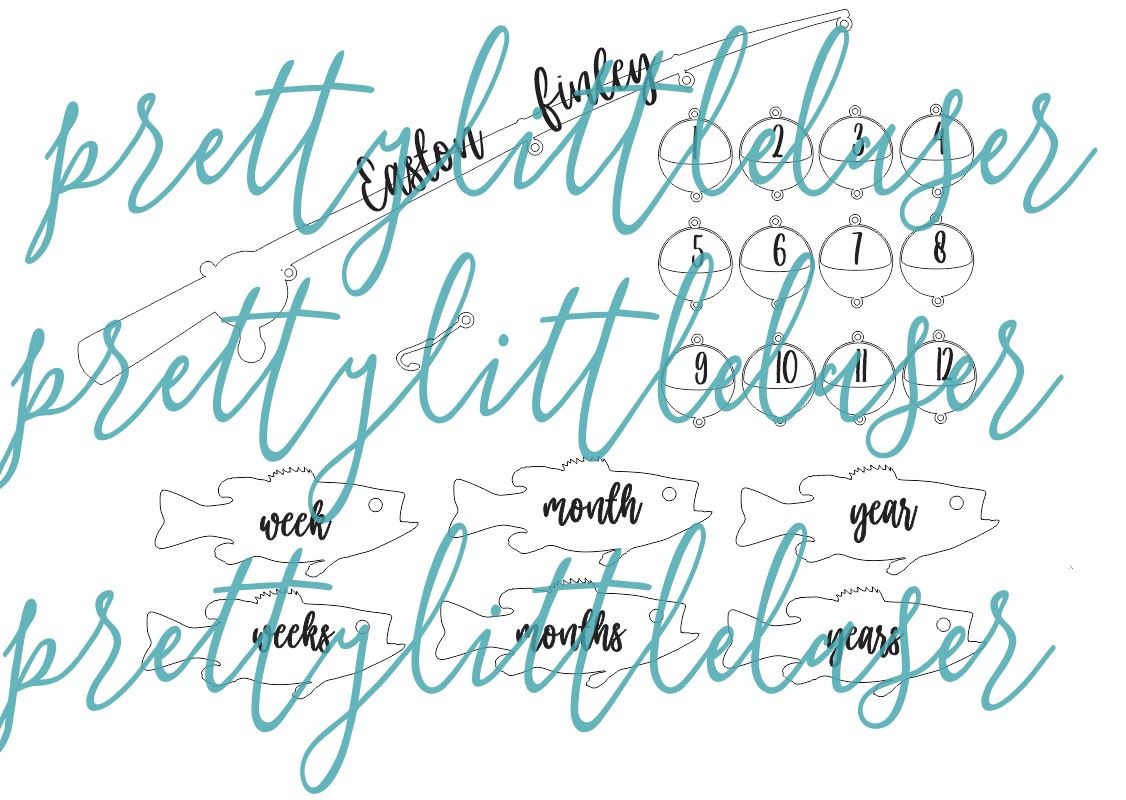 prettylittlelaser
Easton finley
1 2 3 4
5 6 7 8
prettylittlelaser
9 10 11 12
week month year
prettylittlelaser
weeks months years